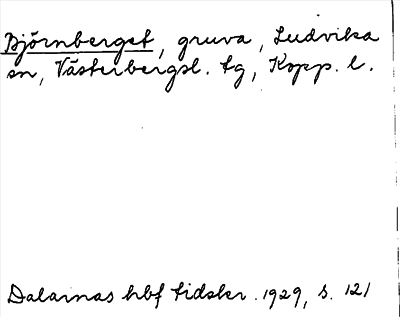 Björnberget, gruva, Ludvika
sn, Västerbergsl. tg, Kopp. l.
Dalarnas hbf tidskr. 1929, s. 121